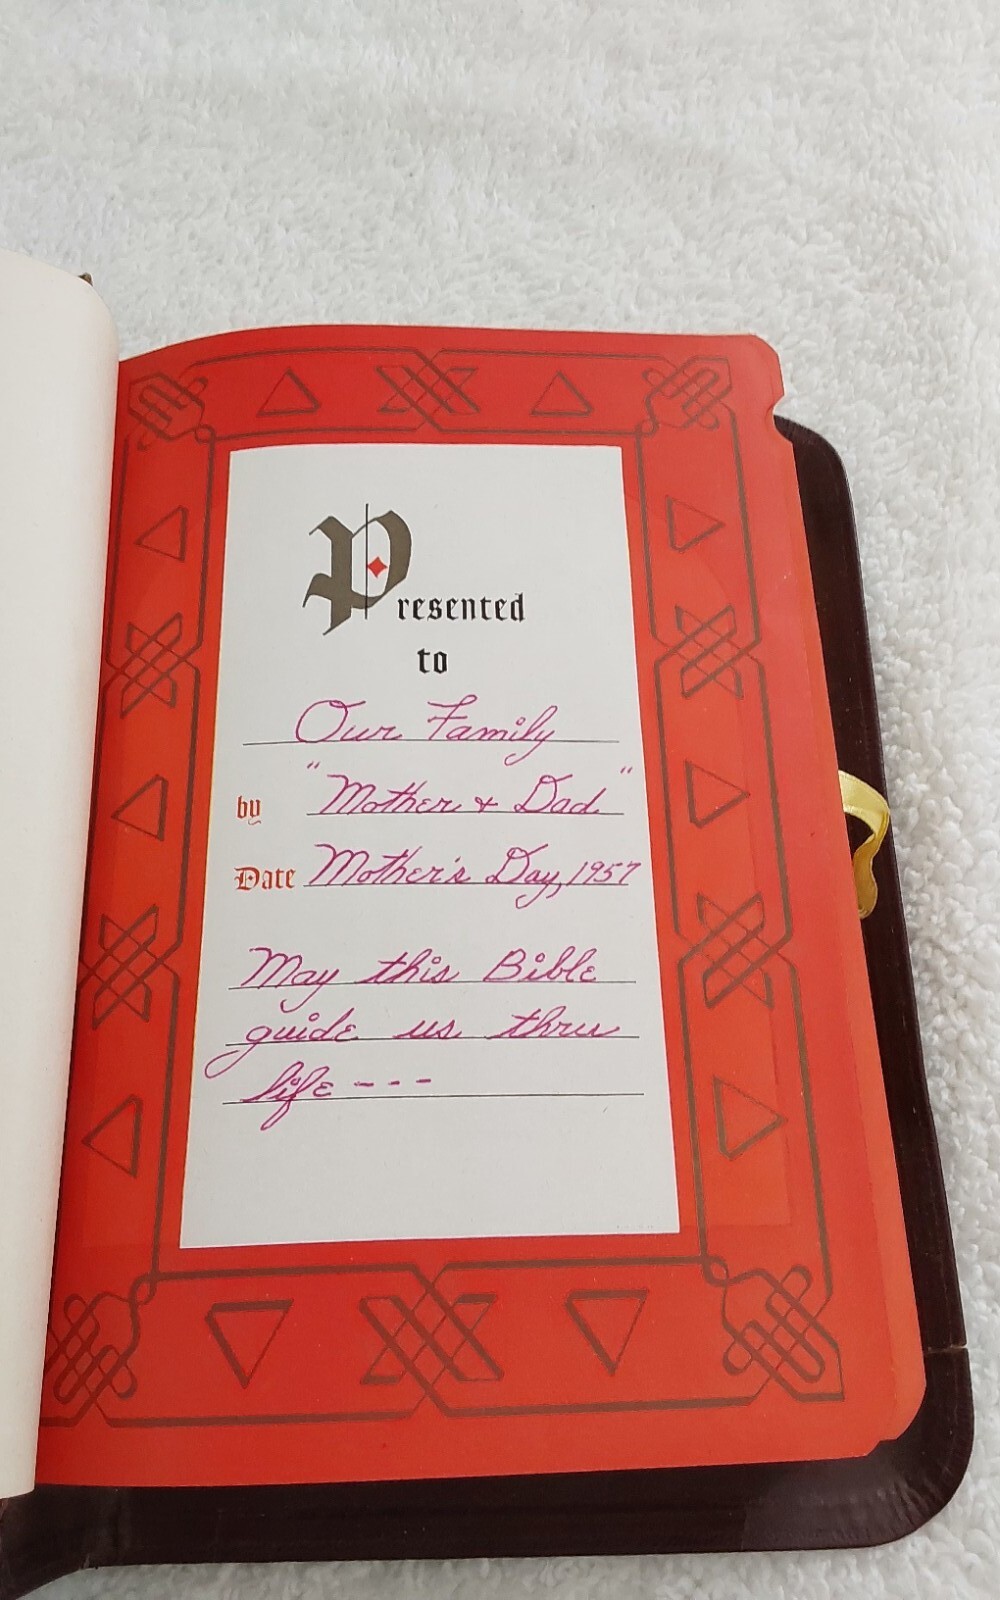 Presented
to
Our Family
by "Mother & Dad"
Date Mother's Day, 1957
May this Bible
guide us thru
life ---